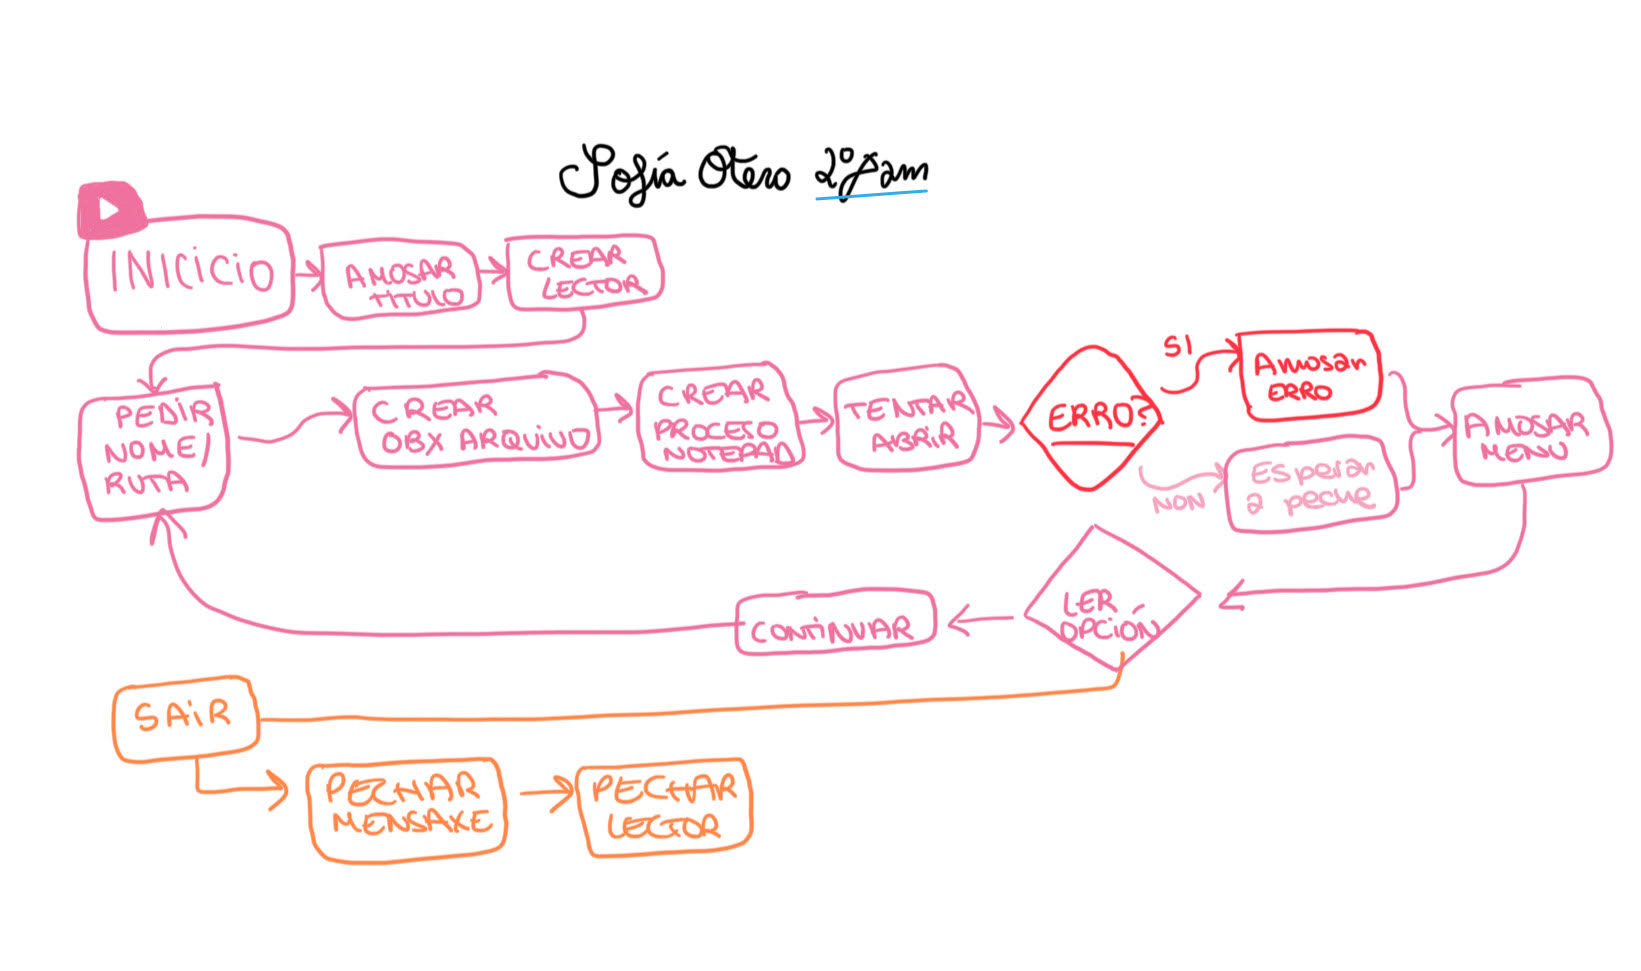 Sofía Otero 2º Dam
INICICIO
AMOSAR
TITULO
CREAR
LECTOR
PEDIR
NOME/
RUTA
CREAR
OBX ARQUIVO
CREAR
PROCESO
NOTEPAD
TENTAR
ABRIR
ERRO?
SI
Amosar
ERRO
NON
Esperar
a peche
AMOSAR
MENU
LER
OPCIÓN
CONTINUAR
SAIR
PECHAR
MENSAXE
PECHAR
LECTOR